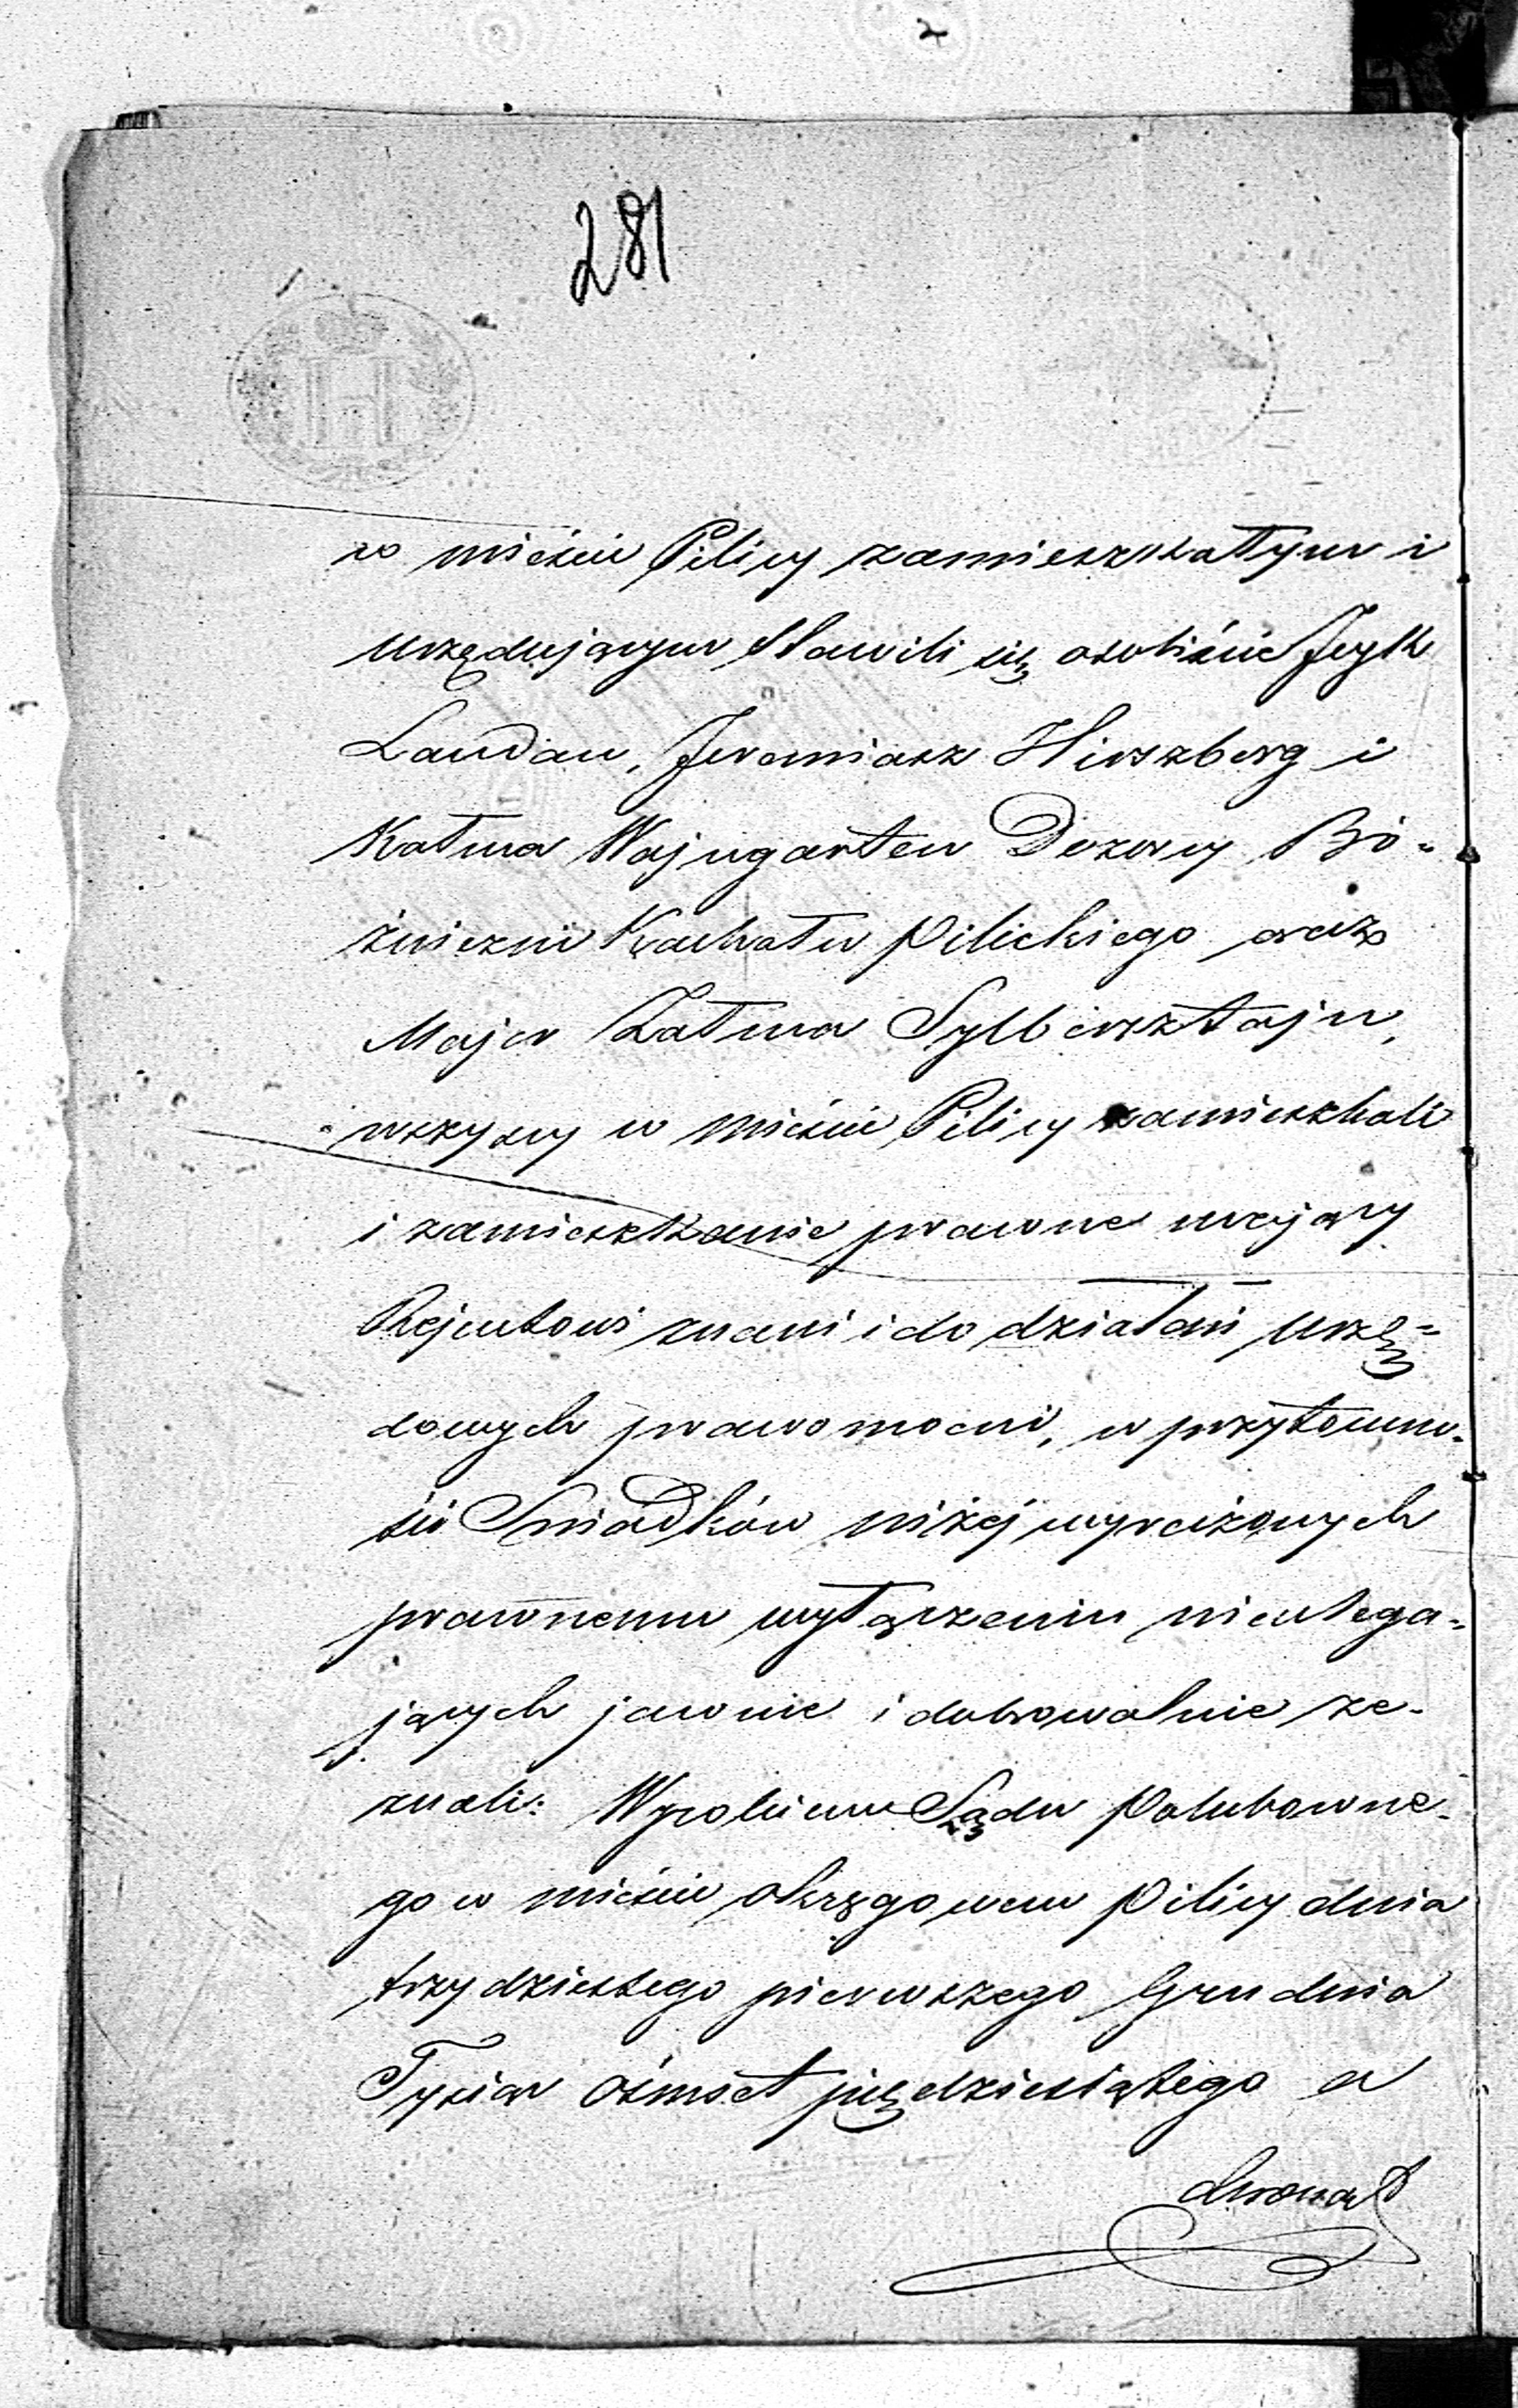 281
w mieście Pilicy zamieszkałym i
urzędującym stawili się osobiście Icyk
Landau, Jeremiasz Hirszberg i
Kalma Wajngarten Dozorcy Bó-
żniczni Kachału Pilickiego oraz
Majer Zalma Sylbersztajn,
wszyscy w mieście Pilicy zamieszkali
i zamieszkanie prawne mający
Rejentowi znani i do działań urzę-
dowych prawomocni, w przytomno-
ści Świadków niżej wyrażonych
prawnemu wyłączeniu nieulega-
jących jawnie i dobrowolnie ze-
znali: Wyrokiem Sądu Polubowne-
go w mieście okręgowem Pilicy dnia
trzydziestego pierwszego Grudnia
Tysiąc ośmset pięćdziesiątego a